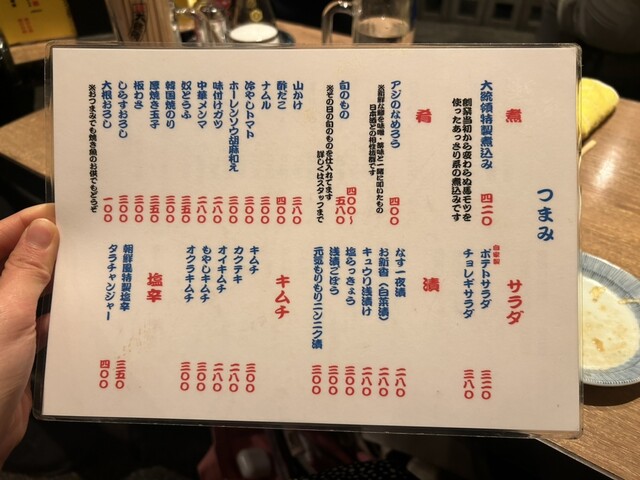 つまみ
煮
大統領特製煮込み 四二〇
創業当初から変わらぬ馬モツを
使ったあっさり系の煮込みです
肴
アジのなめろう 四〇〇
※新鮮な鯵を味噌・薬味と一緒に叩いたもの
日本酒との相性抜群です
旬のもの 四〇〇～
五八〇
※その日の旬のものを仕入れてます
詳しくはスタッフまで
山かけ 三八〇
酢だこ 四〇〇
ナムル 三〇〇
冷やしトマト 三〇〇
ホーレンソウ胡麻和え 三〇〇
味付けガツ 二八〇
中華メンマ 二八〇
奴とうふ 三五〇
韓国焼のり 三〇〇
厚焼き玉子 三五〇
板わさ 三五〇
しらすおろし 三〇〇
大根おろし 一〇〇
※おつまみでも焼き魚のお供でもどうぞ
サラダ
自家製
ポテトサラダ 三二〇
チョレギサラダ 三八〇
漬
なす一夜漬 二八〇
お新香（白菜漬） 二八〇
キュウリ浅漬け 二八〇
塩らっきょう 三〇〇
浅漬ごぼう 三〇〇
元気もりもりニンニク漬 三〇〇
キムチ
キムチ 三〇〇
カクテキ 二八〇
オイキムチ 二八〇
もやしキムチ 三〇〇
オクラキムチ 三〇〇
塩辛
朝鮮風特製塩辛 三五〇
タラチャンジャー 四〇〇